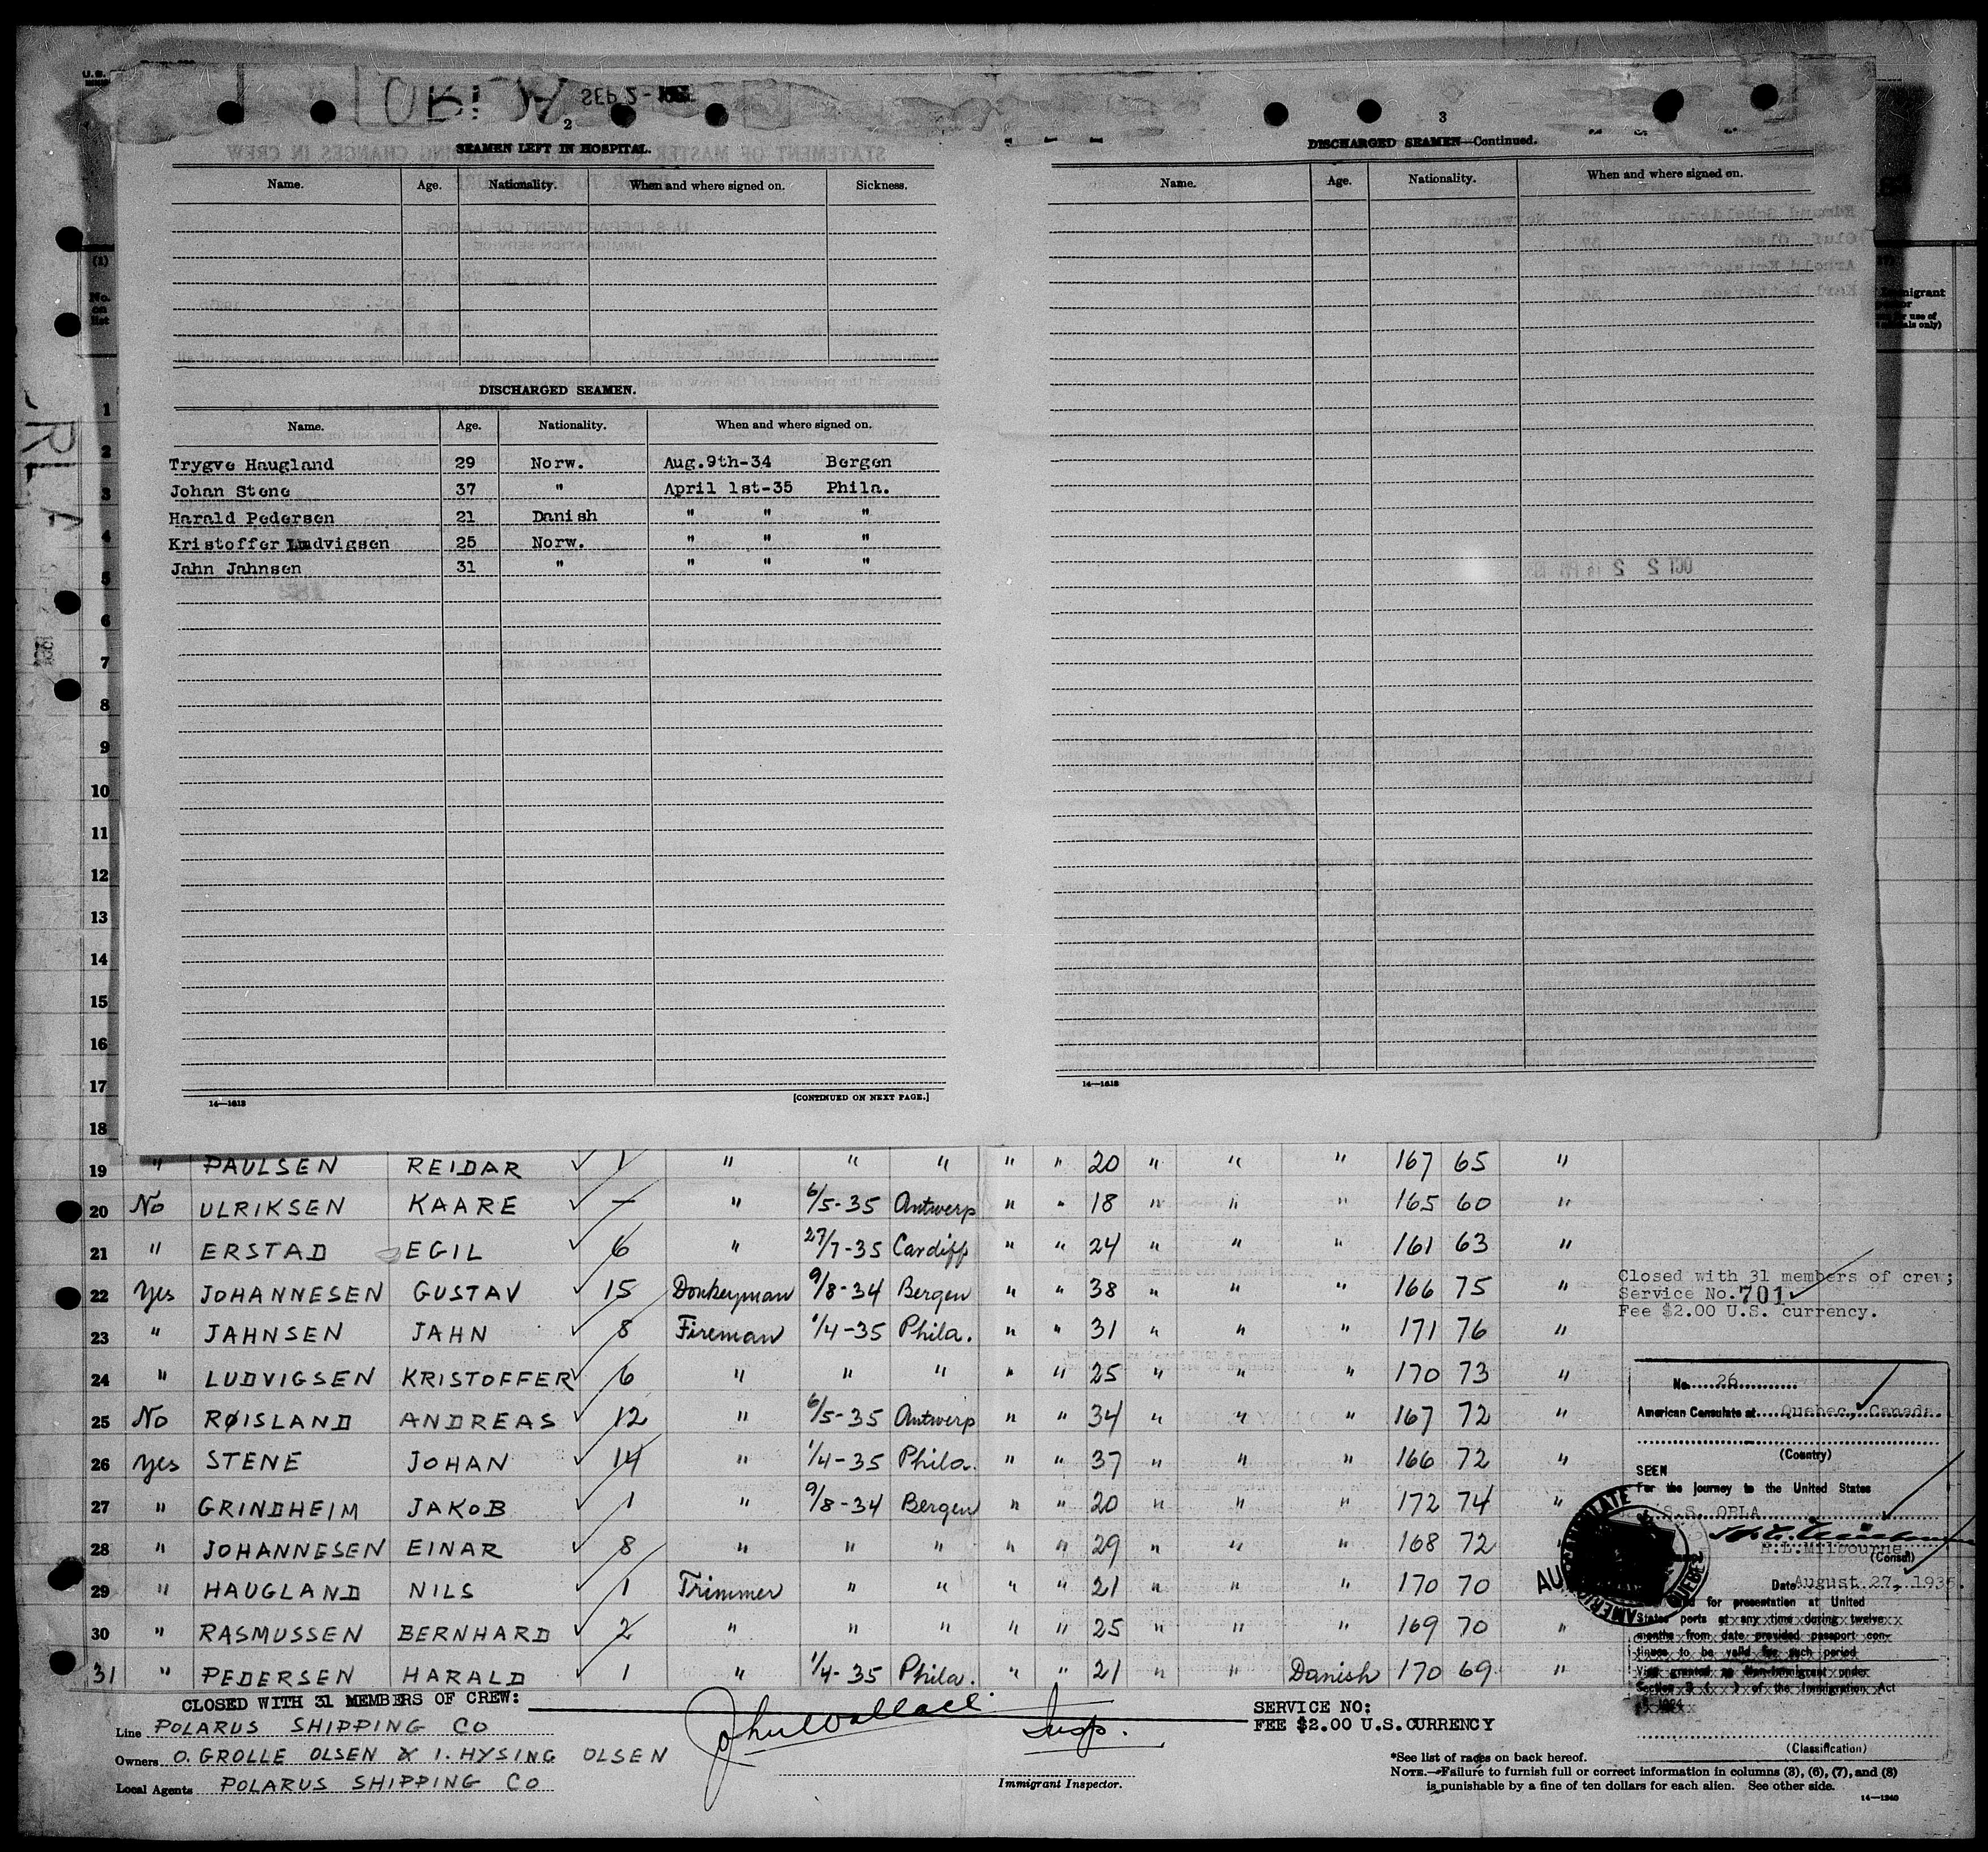 U.S.
SEP 2 -
2
SEAMEN LEFT IN HOSPITAL.
Name. Age. Nationality. When and where signed on. Sickness.
DISCHARGED SEAMEN.
Name. Age. Nationality. When and where signed on.
Trygve Haugland 29 Norw. Aug.9th-34 Bergen
Johan Stene 37 " April 1st-35 Phila.
Harald Pedersen 21 Danish " " "
Kristoffer Ludvigsen 25 Norw. " " "
Jahn Jahnsen 31 " " " "
14—1613 [CONTINUED ON NEXT PAGE.]
3
DISCHARGED SEAMEN—Continued.
Name. Age. Nationality. When and where signed on.
OCT 2 2
14—1613
(1)
No. on list
1
2
3
4
5
6
7
8
9
10
11
12
13
14
15
16
17
18
19 " PAULSEN REIDAR ✓ 1 " " " " " 20 " " " 167 65 "
20 No ULRIKSEN KAARE ✓ — " 6/5-35 Antwerp " " 18 " " " 165 60 "
21 " ERSTAD EGIL ✓ 6 " 27/7-35 Cardiff " " 24 " " " 161 63 "
22 Yes JOHANNESEN GUSTAV ✓ 15 Donkeyman 9/8-34 Bergen " " 38 " " " 166 75 "
23 " JAHNSEN JAHN ✓ 8 Fireman 1/4-35 Phila. " " 31 " " " 171 76 "
24 " LUDVIGSEN KRISTOFFER ✓ 6 " " " " " 25 " " " 170 73 "
25 No RØISLAND ANDREAS ✓ 12 " 6/5-35 Antwerp " " 34 " " " 167 72 "
26 Yes STENE JOHAN ✓ 14 " 1/4-35 Phila. " " 37 " " " 166 72 "
27 " GRINDHEIM JAKOB ✓ 1 " 9/8-34 Bergen " " 20 " " " 172 74 "
28 " JOHANNESEN EINAR ✓ 8 " " " " " 29 " " " 168 72 "
29 " HAUGLAND NILS ✓ 1 Trimmer " " " " 21 " " " 170 70 "
30 " RASMUSSEN BERNHARD ✓ 2 " " " " " 25 " " " 169 70 "
31 " PEDERSEN HARALD ✓ 1 " 1/4-35 Phila. " " 21 " " Danish 170 69 "
Closed with 31 members of crew;
Service No. 701
Fee $2.00 U.S. currency.
No. 26
American Consulate at Quebec, Canada.
(Country)
SEEN
For the journey to the United States
S.S. ORLA
H.L.Milbourne
(Consul)
Date August 27, 1935.
for presentation at United
States ports at any time during twelve
months from date provided passport con-
tinues to be valid for such period
Visa granted as Non-Immigrant under
Section 3 ( ) of the Immigration Act
1924
(Classification)
CLOSED WITH 31 MEMBERS OF CREW:
Line POLARUS SHIPPING CO
Owners O. GROLLE OLSEN & I. HYSING OLSEN
Local Agents POLARUS SHIPPING CO
John Wallace Insp.
Immigrant Inspector.
SERVICE NO:
FEE $2.00 U.S.CURRENCY
*See list of races on back hereof.
NOTE.—Failure to furnish full or correct information in columns (3), (6), (7), and (8)
is punishable by a fine of ten dollars for each alien. See other side.
14—1240